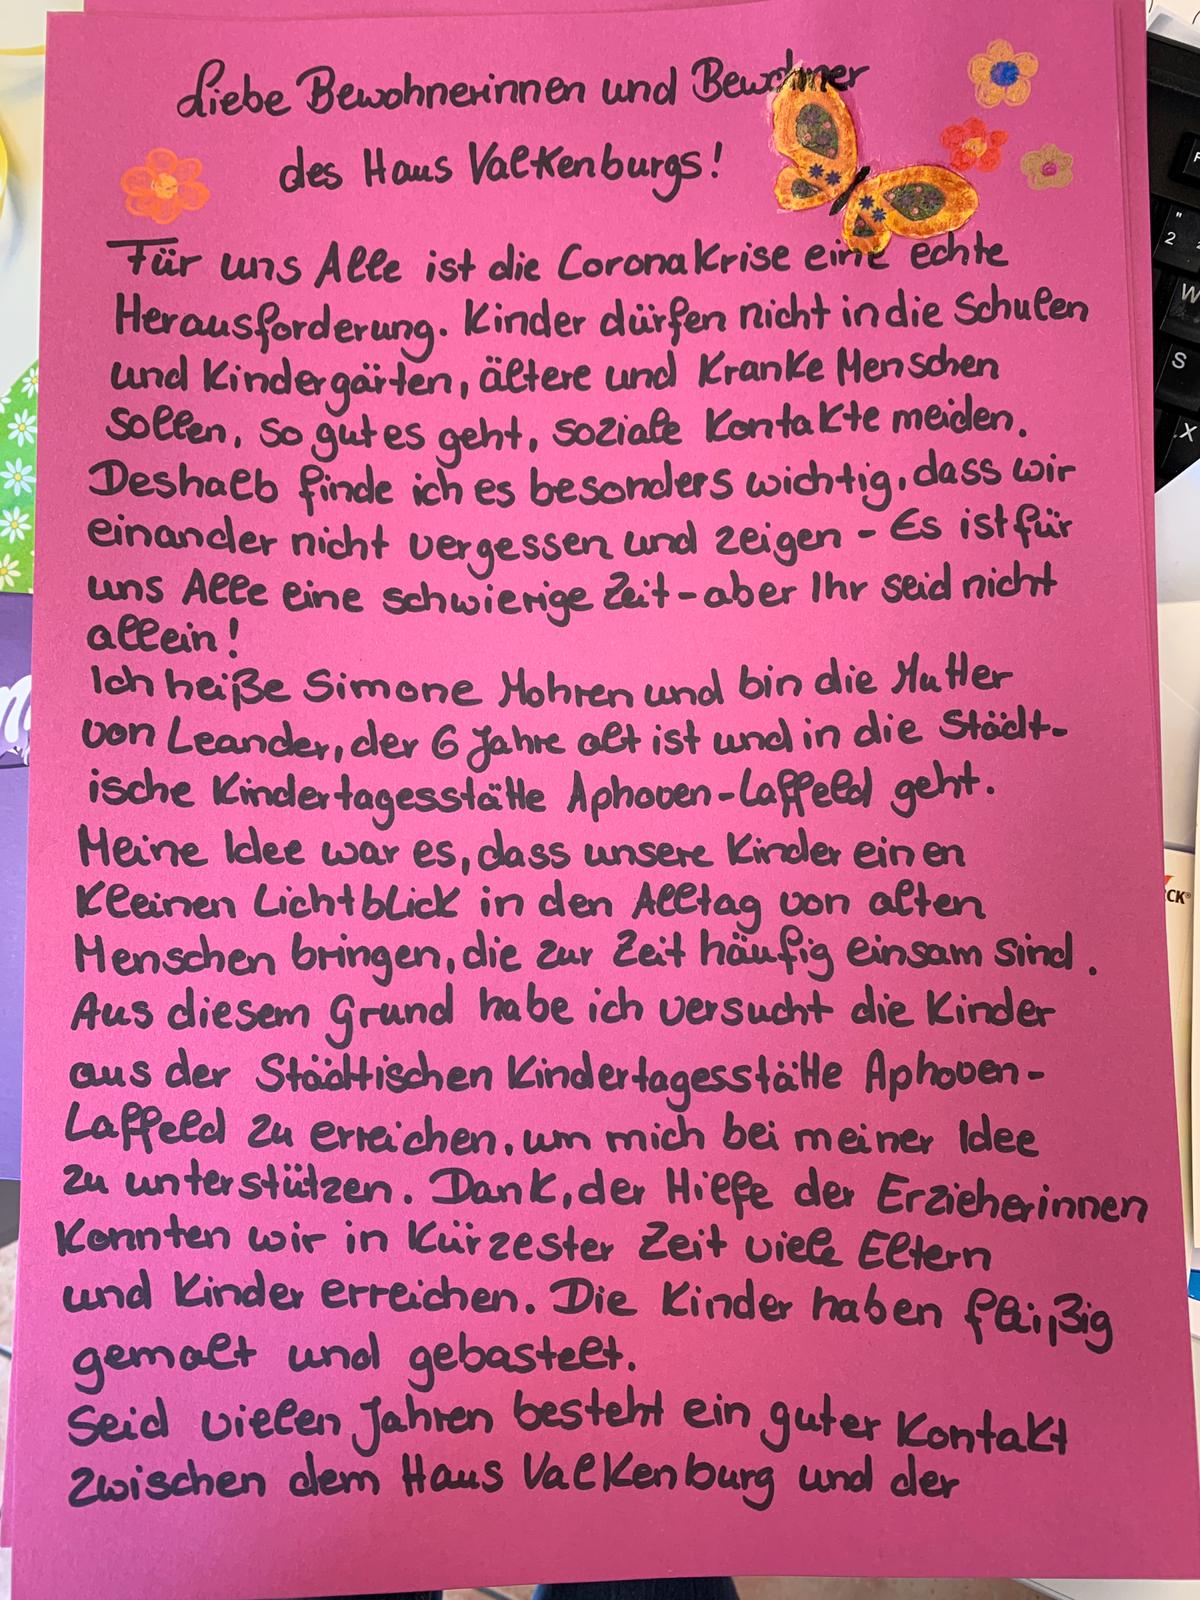 Liebe Bewohnerinnen und Bewohner
des Haus Valkenburgs!
Für uns Alle ist die Coronakrise eine echte
Herausforderung. Kinder dürfen nicht in die Schulen
und Kindergärten, ältere und Kranke Menschen
sollen, so gut es geht, soziale Kontakte meiden.
Deshalb finde ich es besonders wichtig, dass wir
einander nicht vergessen und zeigen - Es ist für
uns Alle eine schwierige Zeit - aber Ihr seid nicht
allein!
Ich heiße Simone Mohren und bin die Mutter
von Leander, der 6 Jahre alt ist und in die Städt-
ische Kindertagesstätte Aphoven-Laffeld geht.
Meine Idee war es, dass unsere Kinder einen
kleinen Lichtblick in den Alltag von alten
Menschen bringen, die zur Zeit häufig einsam sind.
Aus diesem Grund habe ich versucht die Kinder
aus der Städtischen Kindertagesstätte Aphoven-
Laffeld zu erreichen, um mich bei meiner Idee
zu unterstützen. Dank, der Hilfe der Erzieherinnen
konnten wir in kürzester Zeit viele Eltern
und Kinder erreichen. Die Kinder haben fleißig
gemalt und gebastelt.
Seid vielen Jahren besteht ein guter Kontakt
zwischen dem Haus Valkenburg und der
" 2
W
S
X
CK®